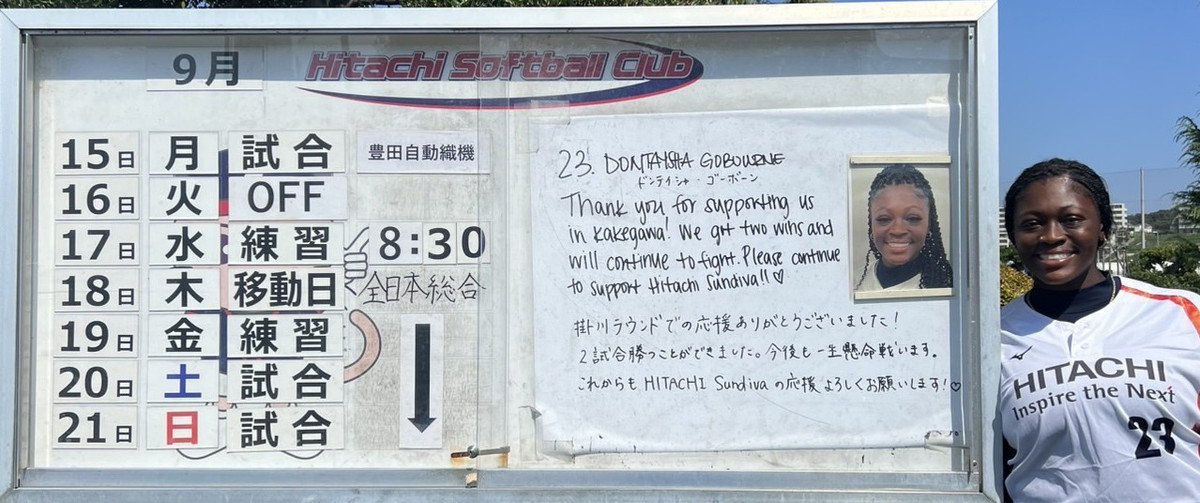 9月
Hitachi Softball Club
15日 月 試合 豊田自動織機
16日 火 OFF
17日 水 練習 8:30
18日 木 移動日 全日本総合
19日 金 練習
20日 土 試合
21日 日 試合
23. DONTAISHA GOBOURNE
ドンテイシャ・ゴーボーン
Thank you for supporting us
in Kakegawa! We got two wins and
will continue to fight. Please continue
to support Hitachi Sundiva!!♡
掛川ラウンドでの応援ありがとうございました！
2試合勝つことができました。今後も一生懸命戦います。
これからも HITACHI Sundiva の応援よろしくお願いします！♡
HITACHI
Inspire the Next
23